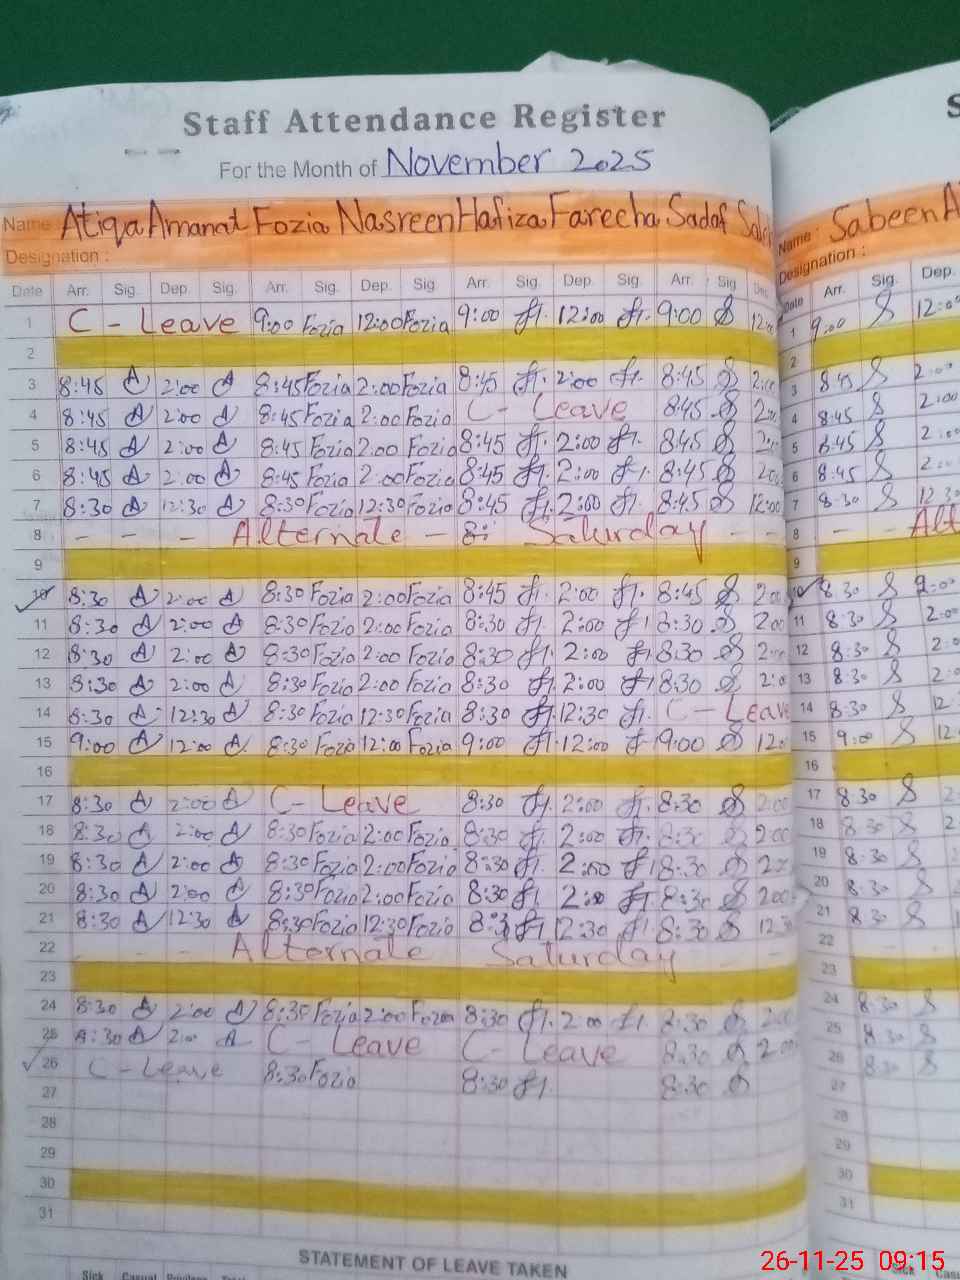 Staff Attendance Register
For the Month of November 2025
Name : Atiqa Amanat Fozia Nasreen Hafiza Fareeha Sadaf
Name : Sabeen
Designation :
Designation :
Date Arr. Sig. Dep. Sig. Arr. Sig. Dep. Sig. Arr. Sig. Dep. Sig. Arr. Sig. Dep.
Date Arr. Sig. Dep.
1 C - Leave 9:00 Fozia 12:00 Fozia 9:00 12:00 9:00 12:00
1 9:00 S 12:00
2
2
3 8:45 A 2:00 A 8:45 Fozia 2:00 Fozia 8:45 2:00 8:45 2:00
3 8:45 S 2:00
4 8:45 A 2:00 A 8:45 Fozia 2:00 Fozia C - Leave 8:45 2:00
4 8:45 S 2:00
5 8:45 A 2:00 A 8:45 Fozia 2:00 Fozia 8:45 2:00 8:45 2:00
5 8:45 S 2:00
6 8:45 A 2:00 A 8:45 Fozia 2:00 Fozia 8:45 2:00 8:45 2:00
6 8:45 S 2:00
7 8:30 A 12:30 A 8:30 Fozia 12:30 Fozia 8:45 2:00 8:45 12:00
7 8:30 S 12:30
8 - - - Alternate - 8: Saturday - -
8 - - - Alt
9
9
10 8:30 A 2:00 A 8:30 Fozia 2:00 Fozia 8:45 2:00 8:45 2:00
10 8:30 S 2:00
11 8:30 A 2:00 A 8:30 Fozia 2:00 Fozia 8:30 2:00 8:30 2:00
11 8:30 S 2:00
12 8:30 A 2:00 A 8:30 Fozia 2:00 Fozia 8:30 2:00 8:30 2:00
12 8:30 S 2:0
13 8:30 A 2:00 A 8:30 Fozia 2:00 Fozia 8:30 2:00 8:30 2:0
13 8:30 S 2:0
14 8:30 A 12:30 A 8:30 Fozia 12:30 Fozia 8:30 12:30 C - Leave
14 8:30 S 12:
15 9:00 A 12:00 A 8:30 Fozia 12:00 Fozia 9:00 12:00 9:00 12:
15 9:00 S 12
16
16
17 8:30 A 2:00 A C - Leave 8:30 2:00 8:30 2:00
17 8:30 S 2
18 8:30 A 2:00 A 8:30 Fozia 2:00 Fozia 8:30 2:00 8:30 2:00
18 8:30 S 2
19 8:30 A 2:00 A 8:30 Fozia 2:00 Fozia 8:30 2:00 8:30 2:00
19 8:30 S
20 8:30 A 2:00 A 8:30 Fozia 2:00 Fozia 8:30 2:00 8:30 2:00
20 8:30 S
21 8:30 A 12:30 A 8:30 Fozia 12:30 Fozia 8:3 12:30 8:30 12:30
21 8:30 S
22 - - - Alternate Saturday - -
22
23
23
24 8:30 A 2:00 A 8:30 Fozia 2:00 Fozia 8:30 2:00 8:30 2:00
24 8:30 S
25 8:30 A 2:00 A C - Leave C - Leave 8:30 2:00
25 8:30 S
26 C - Leave 8:30 Fozia 8:30 8:30
26 8:30 S
27
27
28
28
29
29
30
30
31
31
STATEMENT OF LEAVE TAKEN
Sick Casual
Sick
26-11-25 09:15